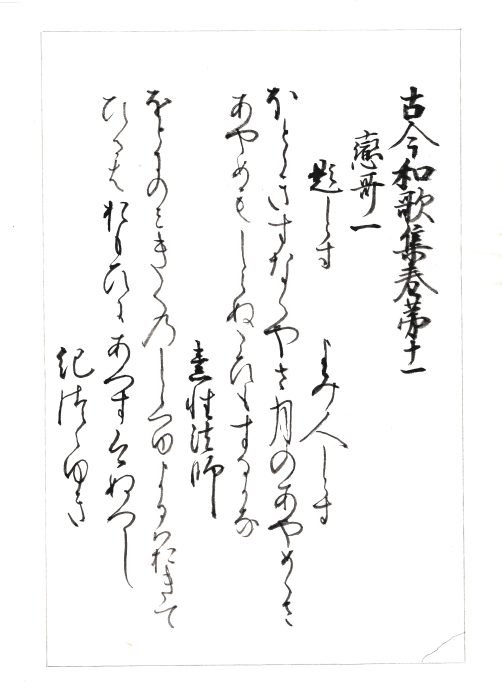 古今和歌集巻第十一
恋哥一
題しらす
よみ人しらす
ほとゝきすなくやさ月のあやめくさ
あやめもしらぬこひもするかな
素性法師
をとにのみきくのしらつゆよるはおきて
ひるはおもひにあへすけぬへし
紀つらゆき